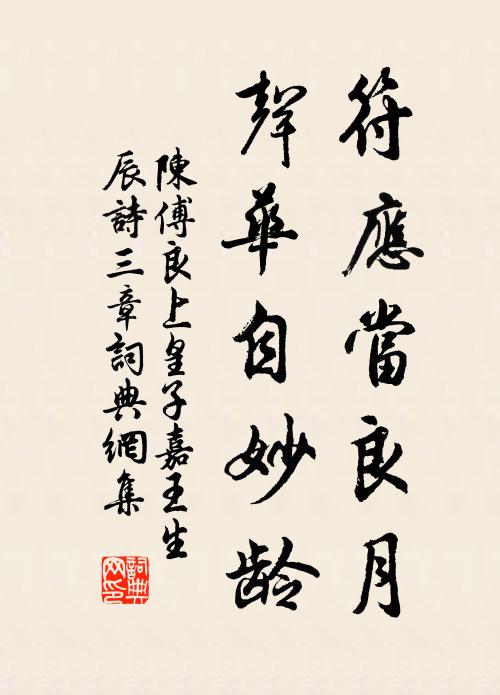 符應當良月
聲華自妙龄
陳傅良上皇子嘉王生
辰詩三章詞典網集
詞典网印